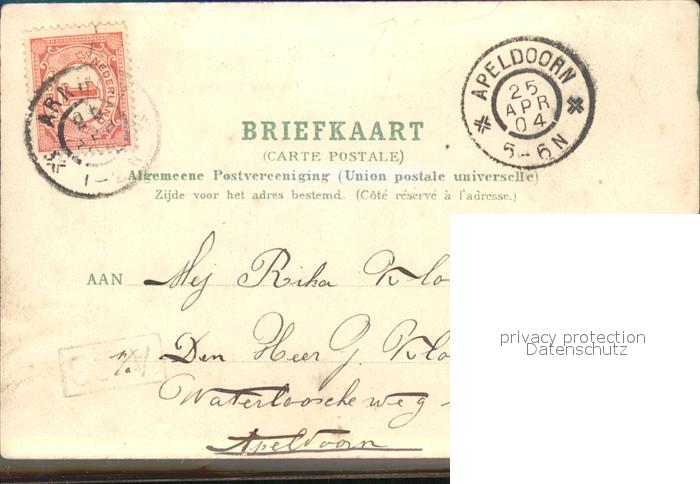 NEDERLAND
ARN
APELDOORN
25
APR
04
5-6N
BRIEFKAART
(CARTE POSTALE)
Algemeene Postvereeniging (Union postale universelle)
Zijde voor het adres bestemd. (Côté réservé à l'adresse.)
AAN Mej Rika Klo
p/a Den Heer J. Klo
Waterlooscheweg
Apeldoorn
privacy protection
Datenschutz